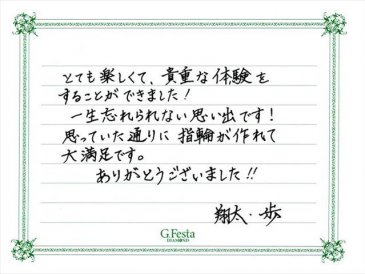 とても楽しくて、貴重な体験を
することができました！
一生忘れられない思い出です！
思っていた通りに指輪が作れて
大満足です。
ありがとうございました!!
翔太・歩
G.Festa
DIAMOND